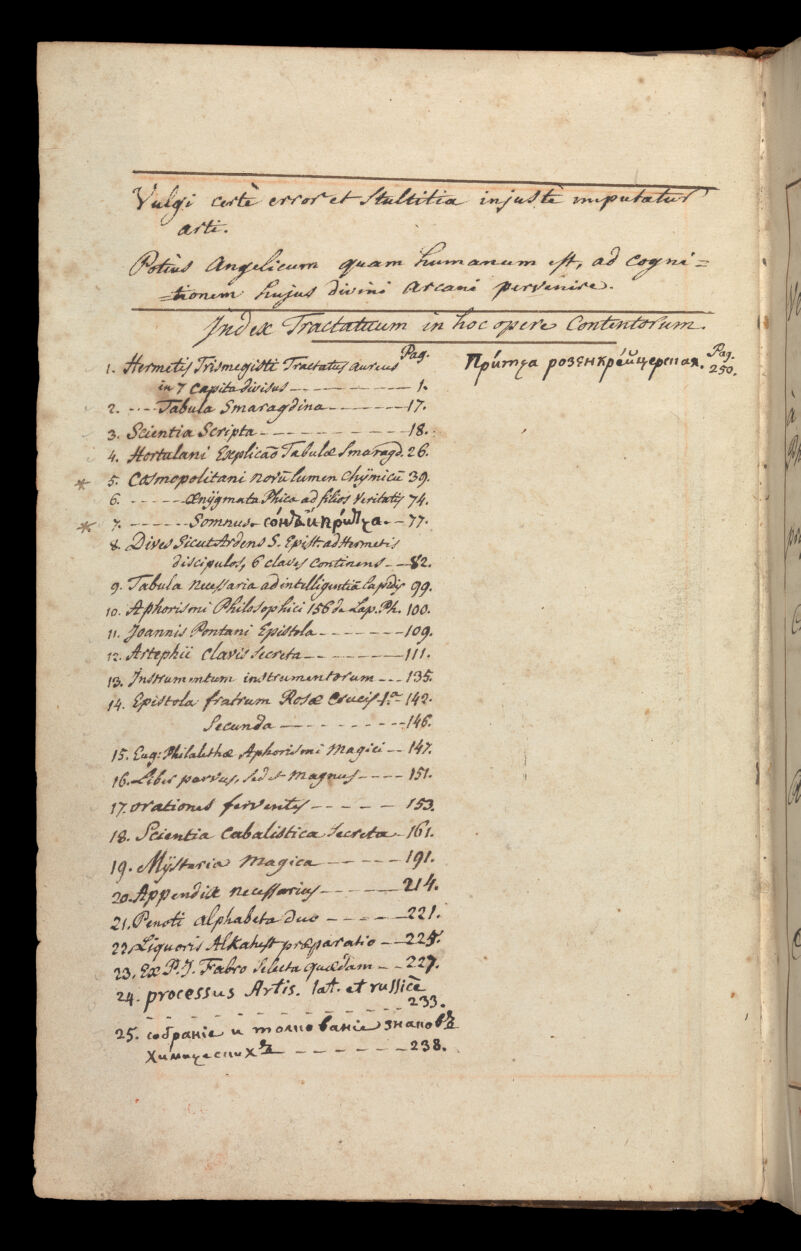 Vulgi certè error et Stultitia injustè imputatur
arti.
Potiùs Angelicum quam humanum est, ad cogni=
=tionem hujus divini Arcani pervenire.
Index Tractatuum in hoc opere Contentorum.
Pag.
1. Hermetis Trismegisti Tractatus aureus
in 7 Capita divisus - - - - - - - 1.
2. - - - - Tabula Smaragdina - - - - - - 17.
3. Scientia Scripta - - - - - - - - - 18.
4. Hortulani Explicaõ Tabulæ Smaragd. 26.
* 5. Cosmopolitani novũ lumen Chÿmicũ 39.
6. - - - - - - Ænÿgmata Phica ad filios Veritatis 74.
* 7. - - - - - - Somnus. со́нъ и при́тча. - - 77.
8. Dives Sicut Ardens S. Epist. ad Hermetis
discipulos, 6 claves continens - - 82.
9. Tabula necessaria ad intelligentiã Lapidis 99.
10. Aphorismi Philosophici 156 de Lap. Ph. 100.
11. Joannis Pontani Epistola - - - - - - - 109.
12. Artephii Clavis Secreta - - - - - - - - 111.
13. Instrumentum instrumentorum - - - 135.
14. Epistola fratrum Rosæ Crucis 1.a - 142.
Secunda - - - - - - - - - - 146.
15. Eug: Philalethæ Aphorismi Magici - - 147.
16. Liber parvus, sed et Magnus - - - - 151.
17. orationes ferventes - - - - - - 153.
18. Scientia Cabalistica Secreta - 161.
19. Mÿsteria Magica - - - - - - 191.
20. Appendix necessarius - - - - - - 214.
21. Penoti alphabeta duo - - - - - 221.
22. Liquoris Alkahest præparatio - - 225.
23. Ex P. J. Fabro Selecta quædam - - 227.
24. processus Artis. lat. et russicè
- - - - - - - - - - - 233.
25. собранiе и толкованiе знаковъ
химическихъ - - - - - - 238.
При́тча розенкре́йцерская. Pag.
250.